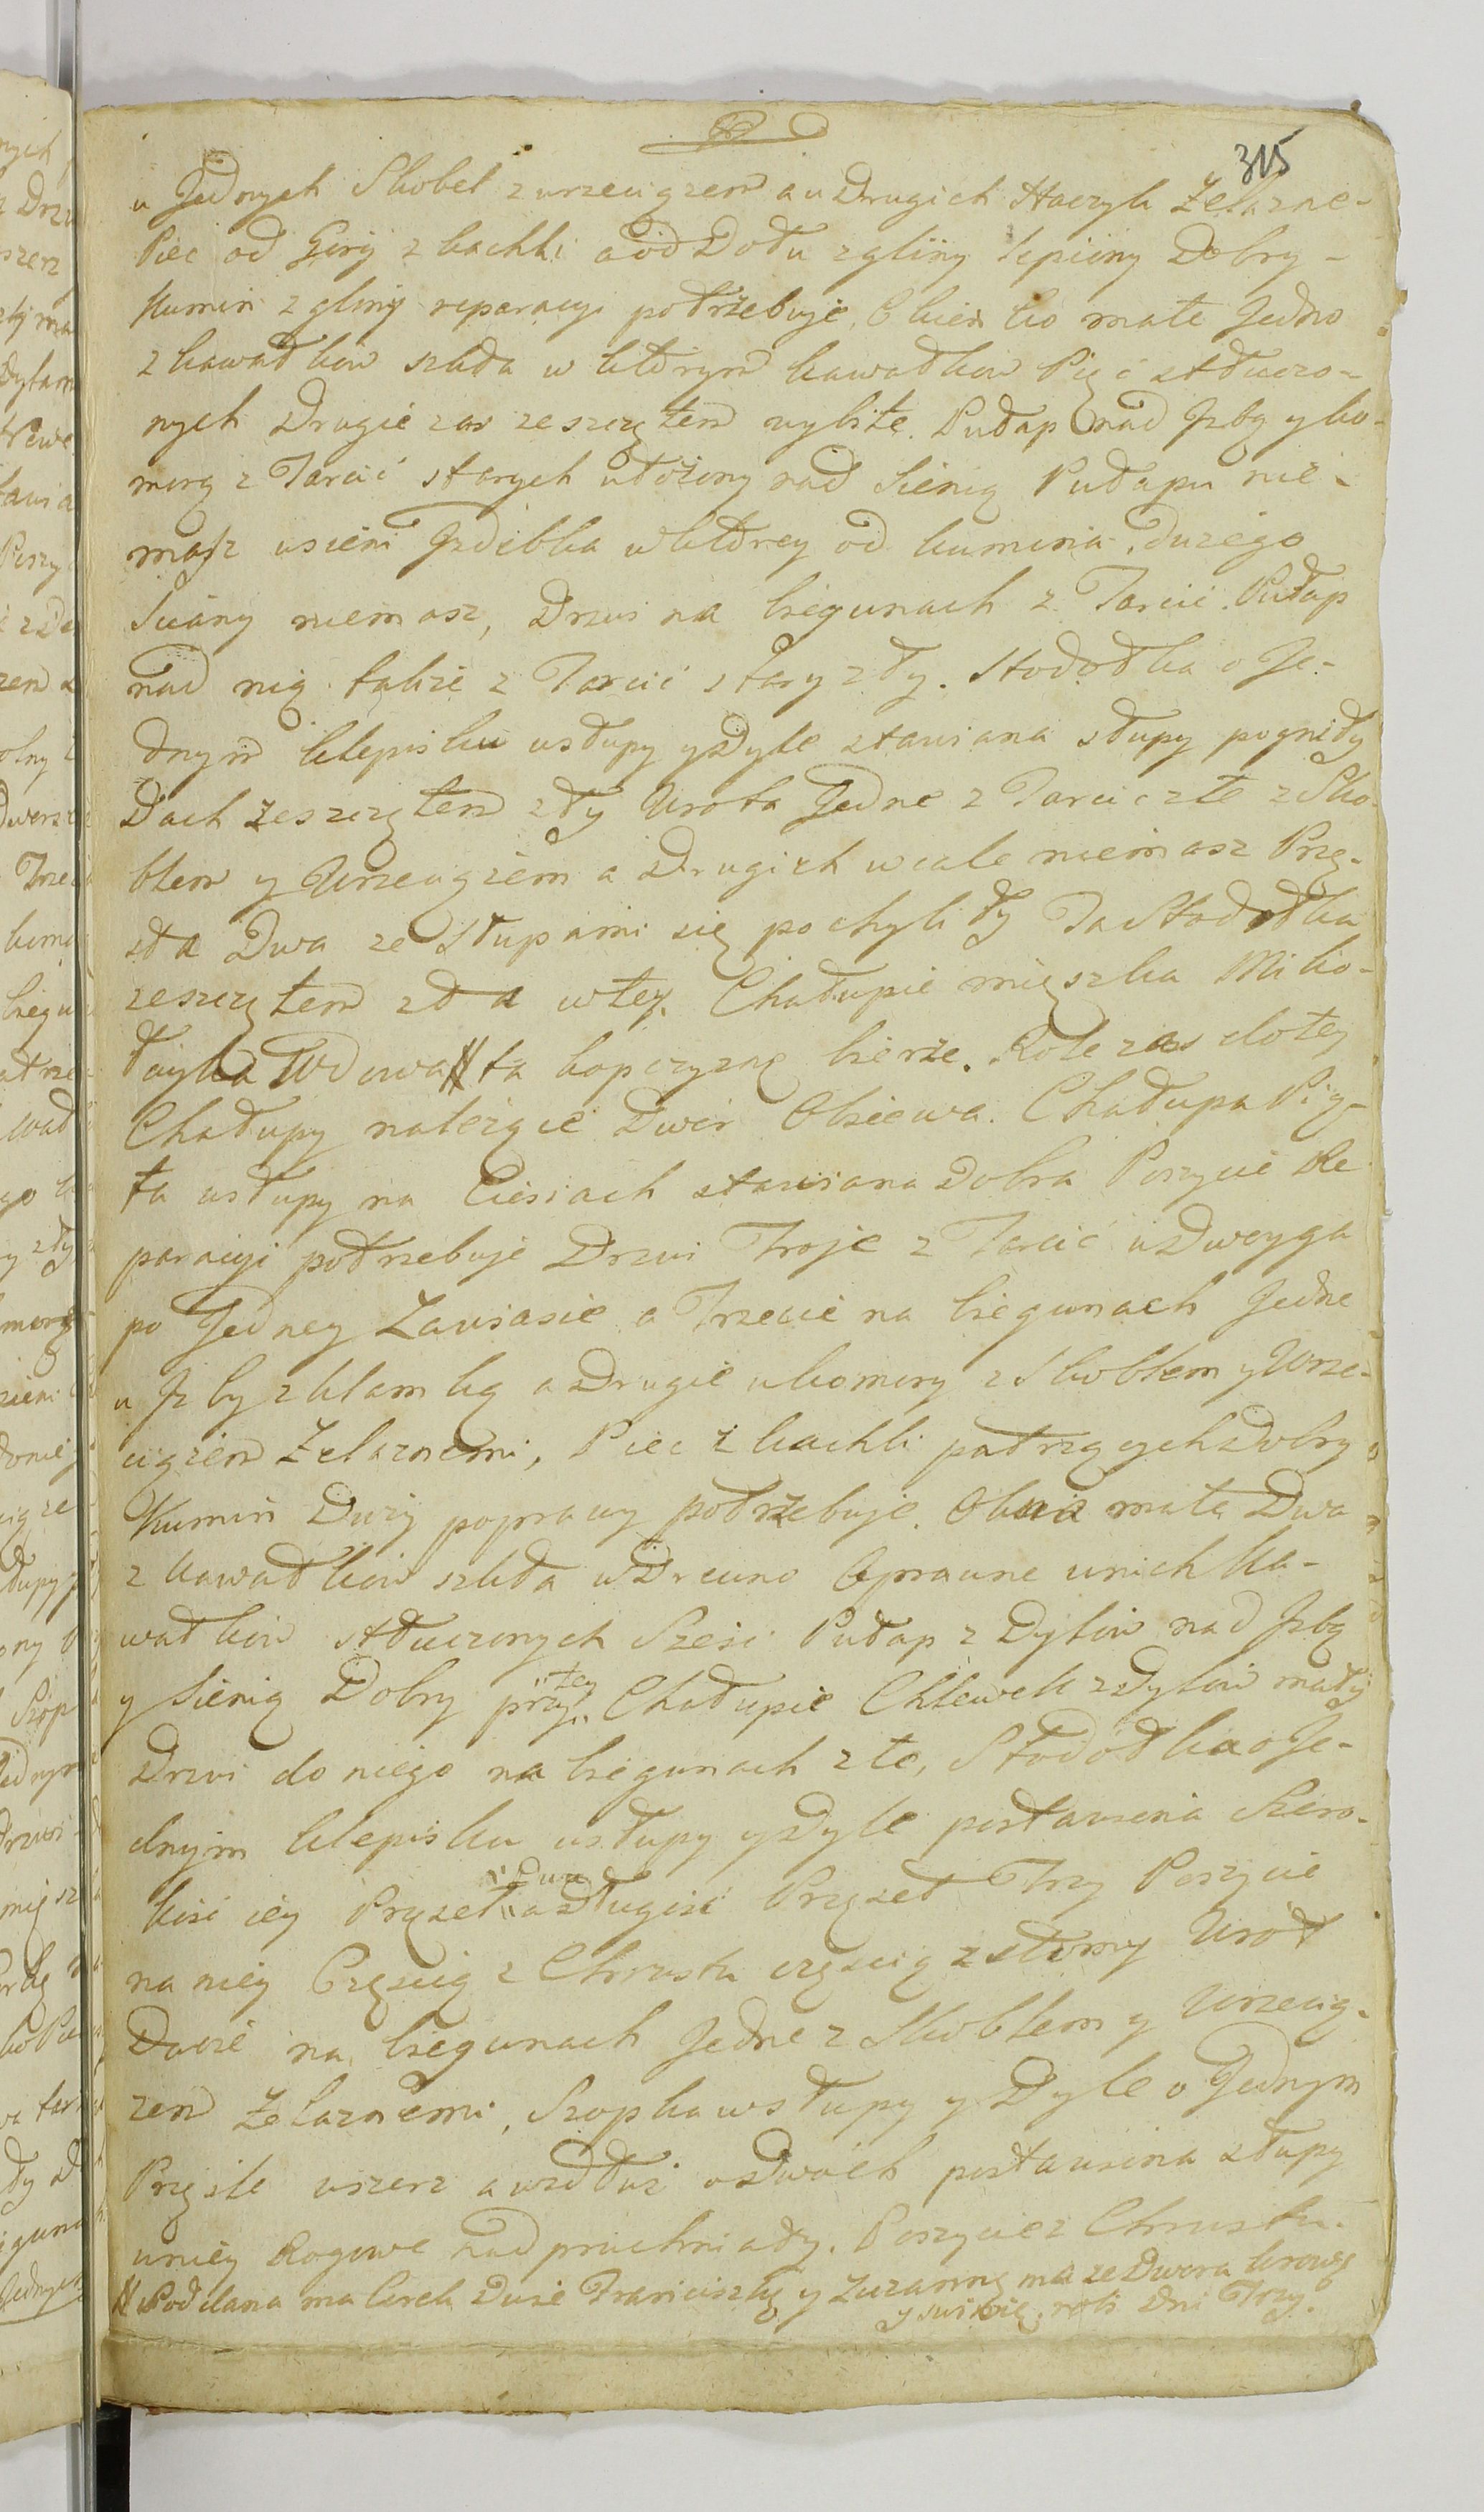 315
u Jednych Skobel z wrzeciązem a u Drugich Haczyk Żelazne-
Piec od Gory z kachli a od Dołu z gliny lepiony Dobry-
Kumin z gliny reparacyi potrzebuje. Okienko małe Jedno
z kawałkow szkła w którym kawałkow Pięć stłuczo-
nych Drugie zas zeszczętem wybite. Pułap nad Jzbą y ko-
morą z Tarcic starych ułożony nad Sienią Pułapu nie-
masz w sieni Jzdebka w którey od kumina dużego
Sciany niemasz, Drzwi na biegunach z Tarcic. Pułap
nad nią także z Tarcic stary zły. Stodołka o Je-
dnym klepisku w słupy y Dyle stawiana słupy pogniły
Dach zeszczętem zły Wrota Jedne z Tarcic złe z Sko-
blem y Wrzeciązem a Drugich wcale niemasz Przę-
sła Dwa ze Słupami się pochyliły Ta Stodołka
zeszczętem zła w tey Chałupie mięszka Miko-
łayka Wdowa // ta kopczyznę bierze. Role zas do tey
Chałupy należące Dwor Obsiewa. Chałupa Pią-
ta w słupy na Ciesiach stawiana Dobra Poszycie Re
paracyi potrzebuje Drzwi Troje z Tarcic u Dwoyga
po Jedney Zawiasie a Trzecie na biegunach Jedne
u Jzby z klamką a Drugie u komory z Skoblem y Wrze-
ciązem Żelaznemi, Piec z kachli patrzących Dobry
Kumin Duży poprawy potrzebuje. Okna małe Dwa
z kawałkow szkła w Drewno Oprawne w nich ka-
wałkow stłuczonych Sześć Pułap z Dylow nad Jzbą
y Sienią Dobry przy tey Chałupie Chlewek z Dylow mały
Drzwi do niego na biegunach złe, Stodołka o Je-
dnym klepisku w słupy y Dyle postawiona Szero-
kość iey Przęseł Dwa a Długość Przęseł Trzy Poszycie
na niey Częścią z Chrustu częścią z słomy Wrót
Dwoie na biegunach Jedne z Skoblem y Wrzecią-
zem Żelaznemi, Szopka w słupy y Dyle o Jednym
Przęśle wszerz a wzdłuż o Dwoch postawiona słupy
u niey Rogowe nadpruchniały. Poszycie z Chrustu.
// Poddana ma Corek Dwie Franciszkę y Zuzannę ma ze Dwora krowę
y swinię robi Dni Trzy.